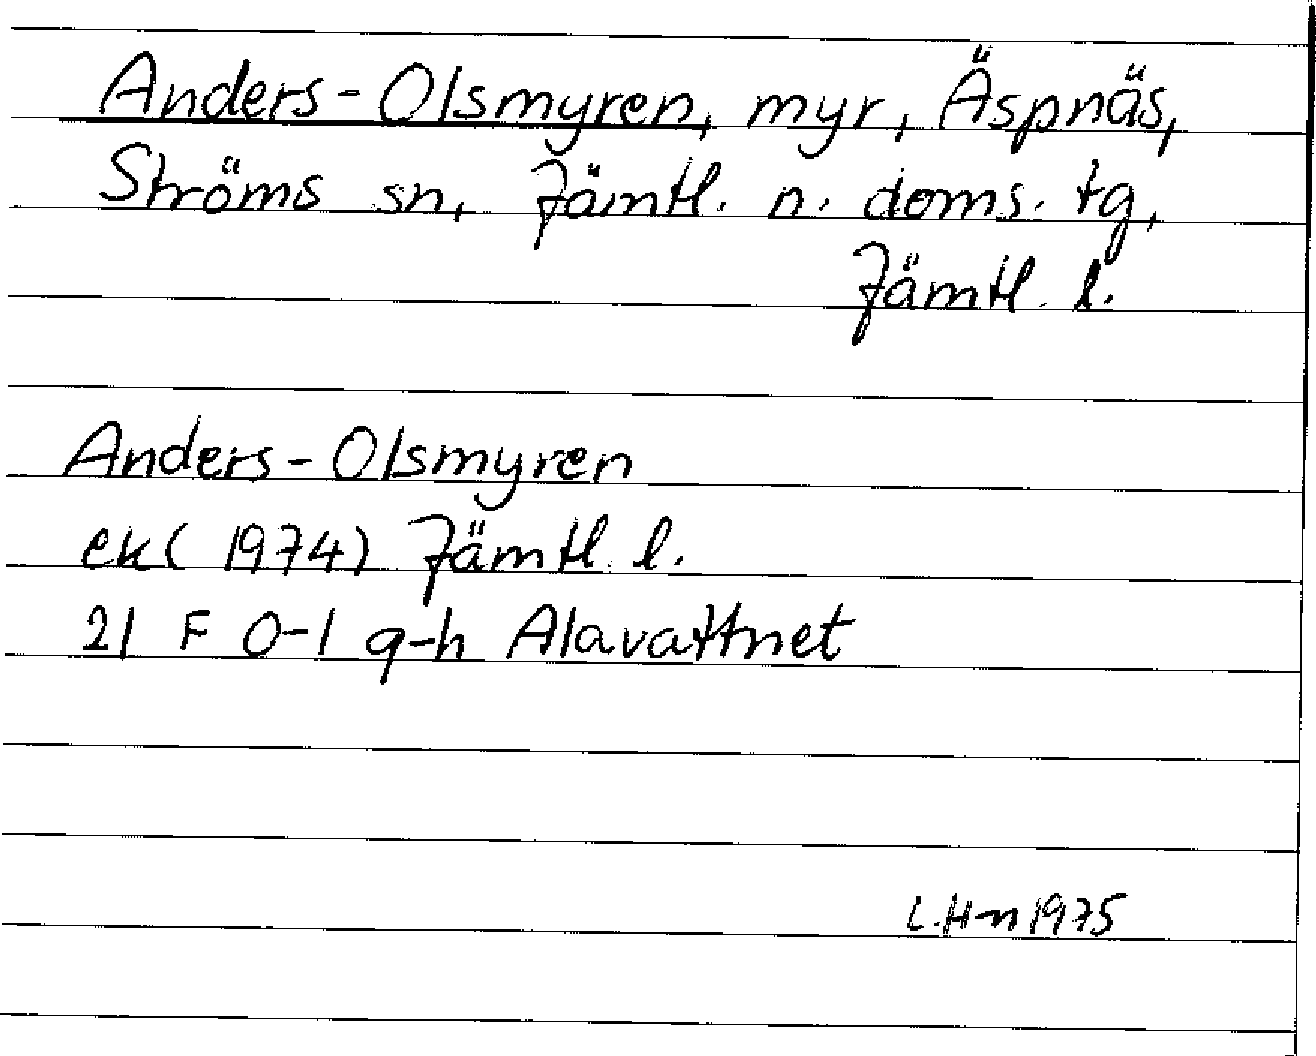 Anders-Olsmyren, myr, Äspnäs,
Ströms sn, Jämtl. n. doms. tg,
Jämtl. l.
Anders-Olsmyren
ek (1974) Jämtl. l.
21 F 0-1 g-h Alavattnet
L.Hn 1975